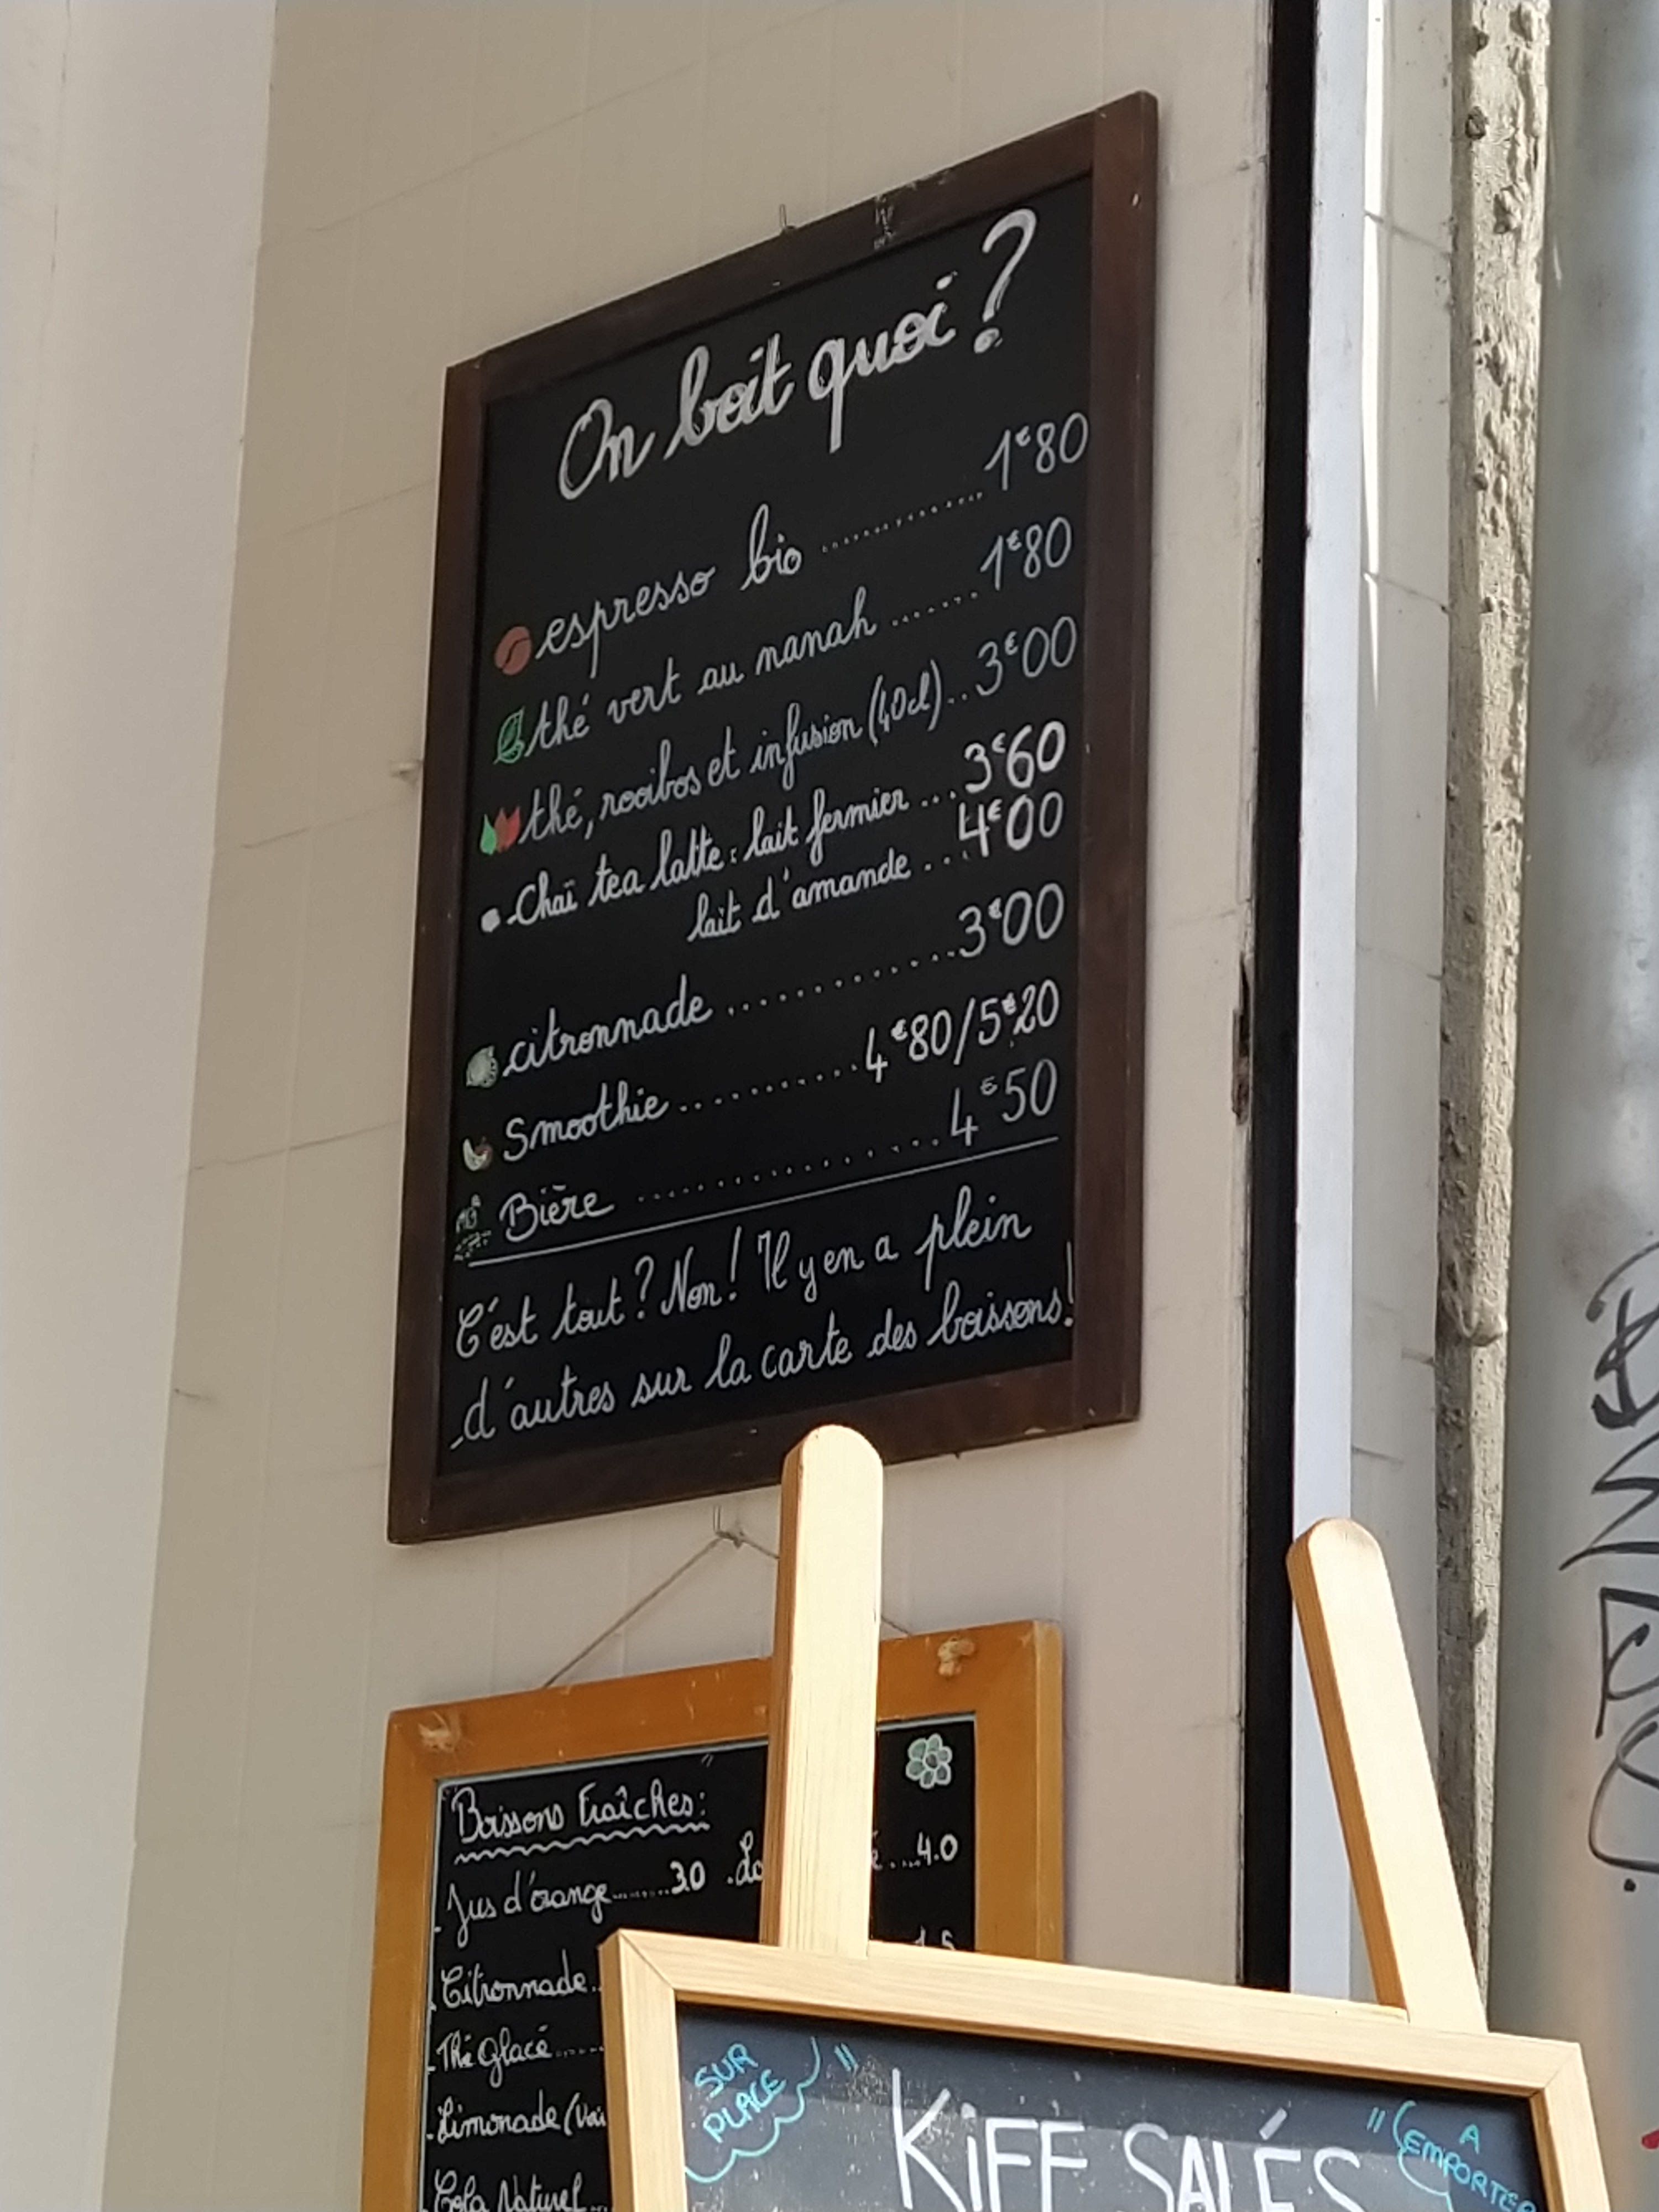 On boit quoi ?
espresso bio .............. 1€80
thé vert au nanah ....... 1€80
thé, rooibos et infusion (40cl) .. 3€00
Chaï tea latte : lait fermier ... 3€60
lait d'amande ... 4€00
citronnade ............. 3€00
Smoothie .......... 4€80/5€20
Bière .............. 4€50
C'est tout ? Non ! Il y en a plein
d'autres sur la carte des boissons !
Boissons Fraîches :
Jus d'orange ....... 3.0 4.0
Citronnade
Thé Glacé .....
Limonade
Cola Naturel
SUR PLACE
KIFF SALÉS
A EMPORTER